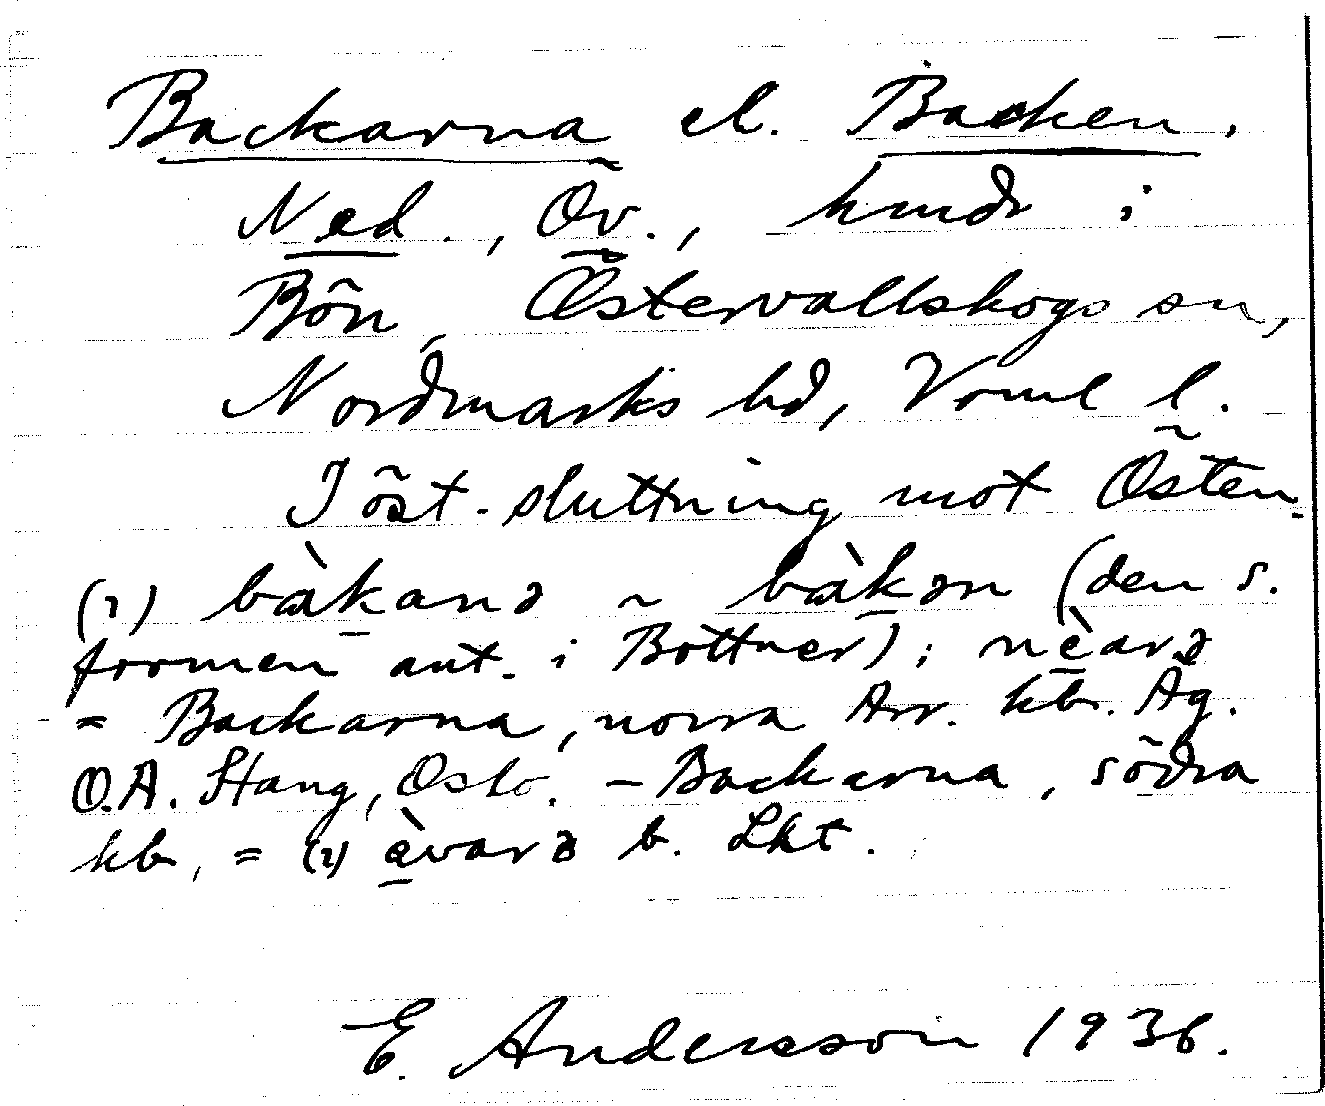 Backarna el. Backen,
Ned., Öv., hmdr i
Bön, Östervallskogs sn,
Nordmarks hd, Vrml l.
I öst-sluttning mot Östen.
(2) bàkanə ~ bàkən (den s.
formen ant. i Bottner); nèarə
= Backarna, norra Arr. hb. Äg.
O.A. Stang, Oslo. – Backarna, södra
hb, = (2) àvarə b. Lkt.
E. Andersson 1936.